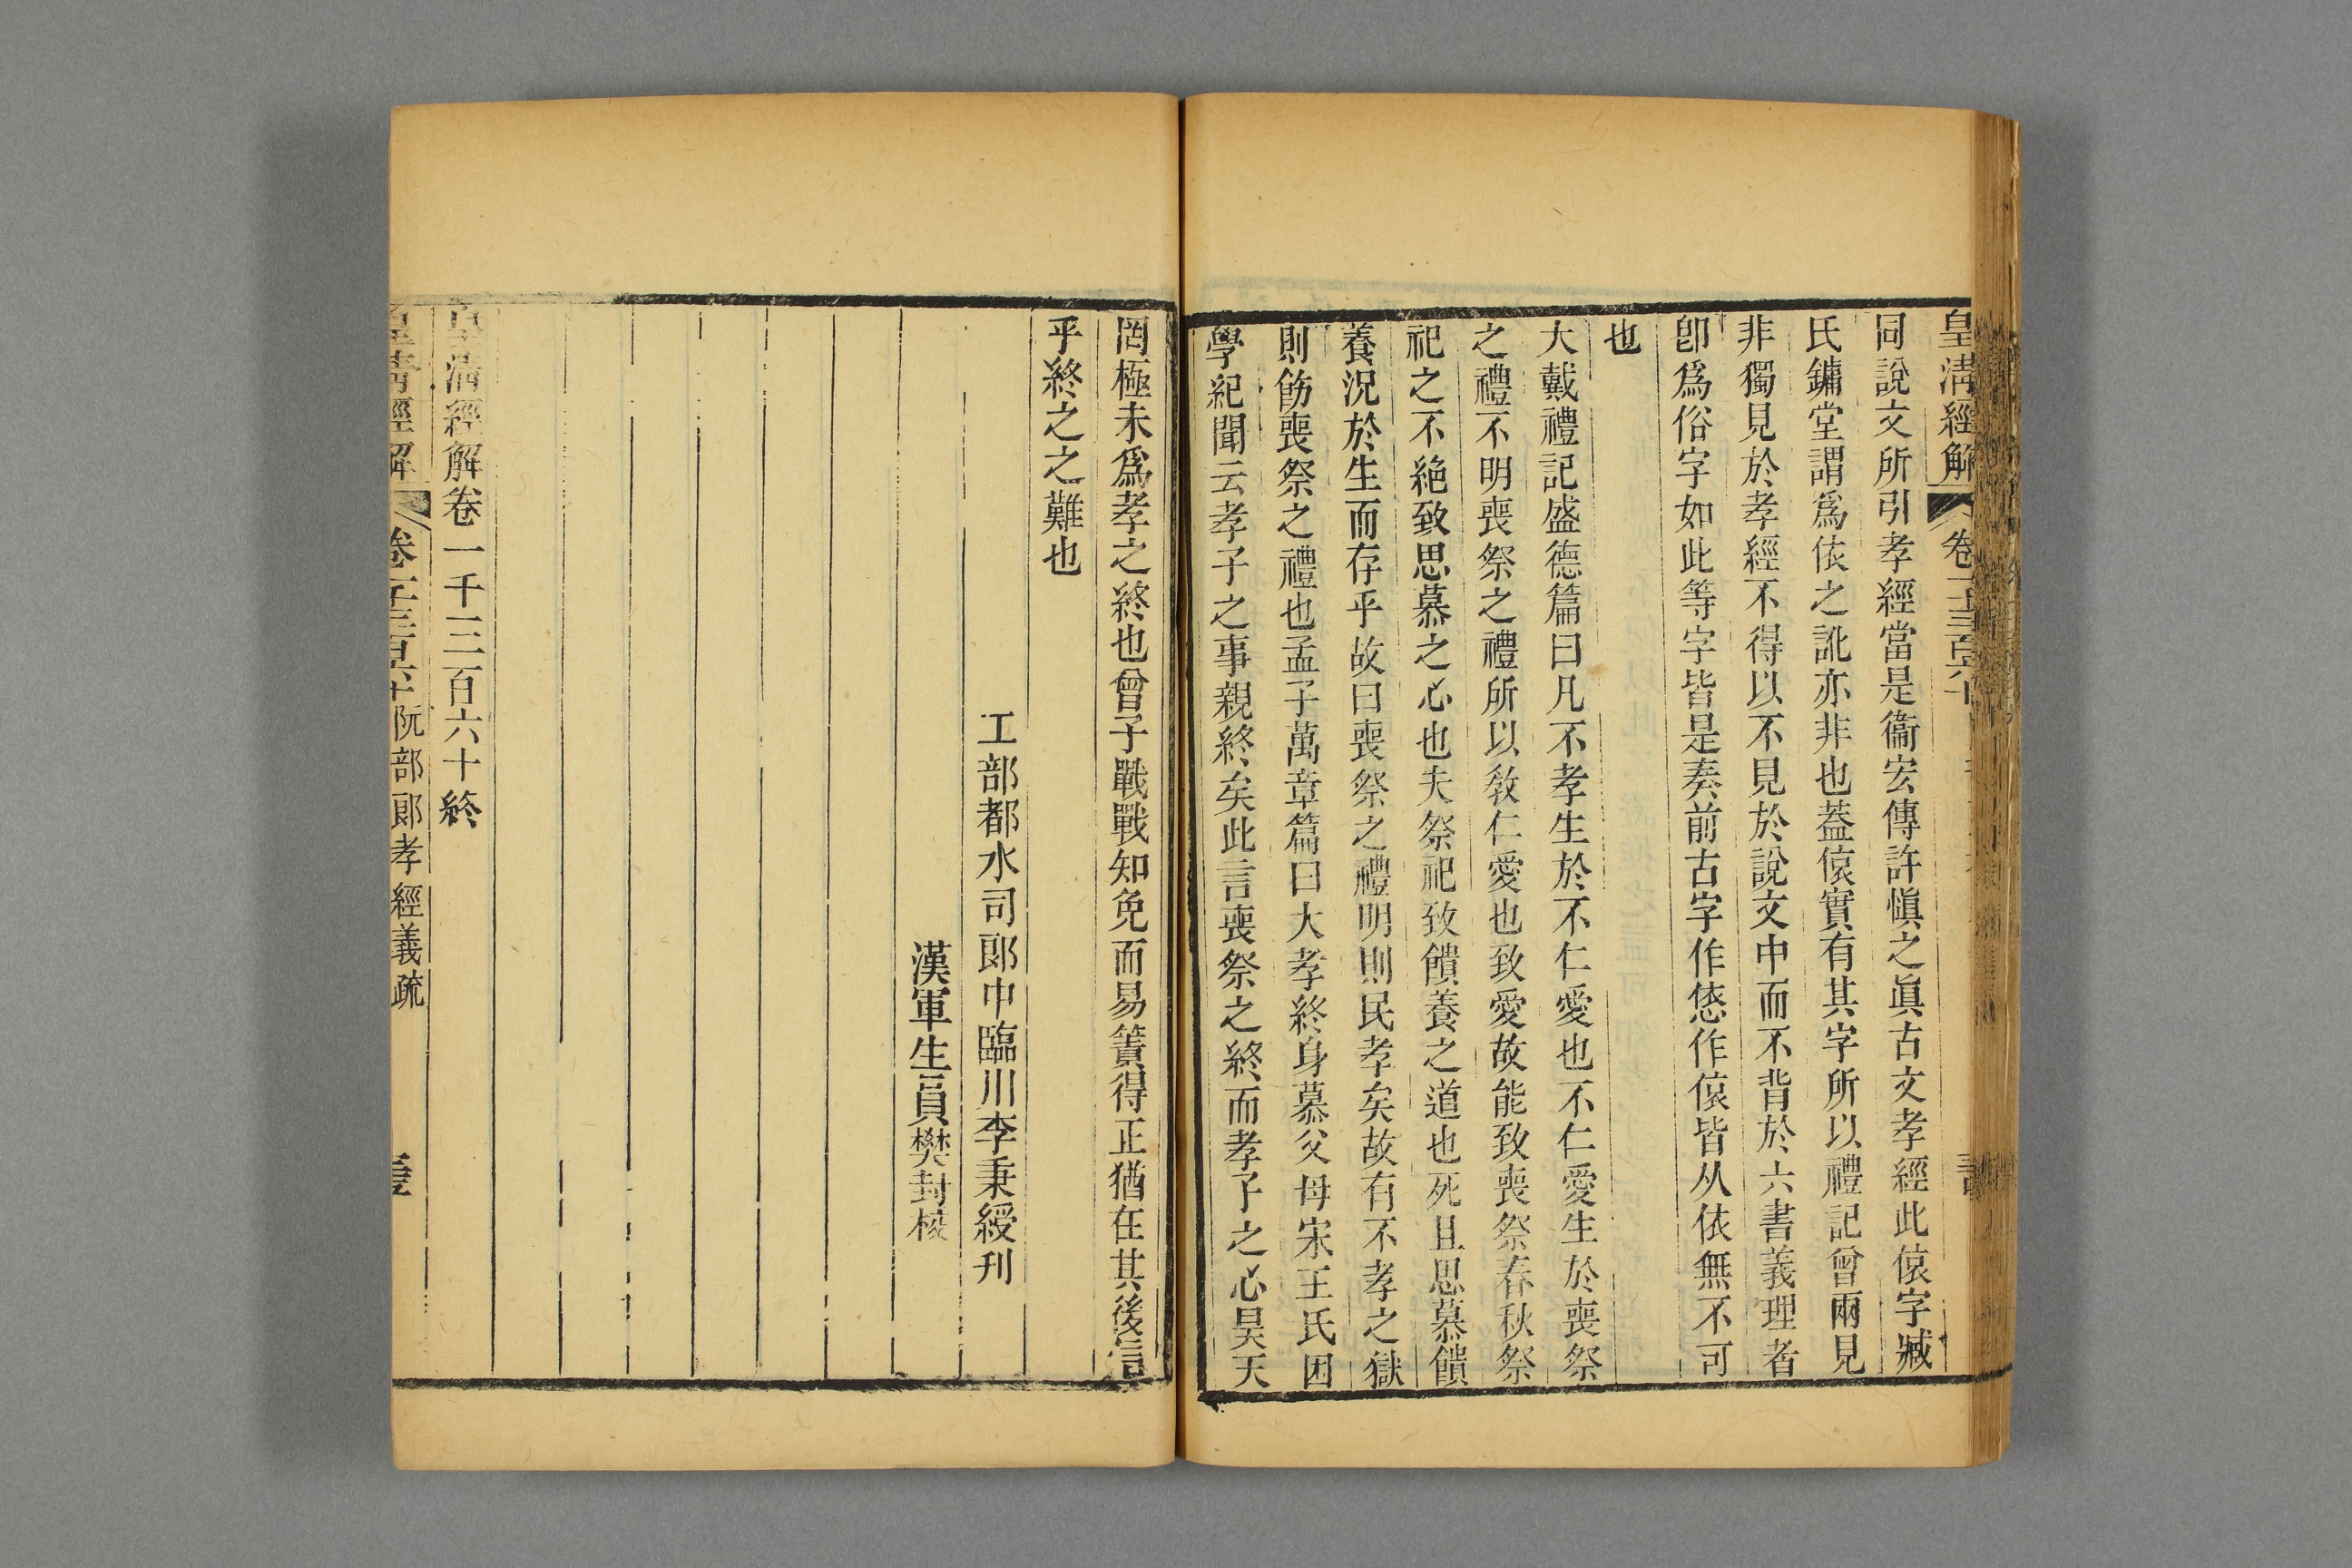 皇清經解 卷一千三百六十
同說文所引孝經當是衞宏傳許愼之眞古文孝經此偯字臧
氏鏞堂謂爲依之訛亦非也蓋偯實有其字所以禮記曾兩見
非獨見於孝經不得以不見於說文中而不背於六書義理者
卽爲俗字如此等字皆是秦前古字作㥋作偯皆从依無不可
也
大戴禮記盛德篇曰凡不孝生於不仁愛也不仁愛生於喪祭
之禮不明喪祭之禮所以敎仁愛也致愛故能致喪祭春秋祭
祀之不絶致思慕之心也夫祭祀致饋養之道也死且思慕饋
養況於生而存乎故曰喪祭之禮明則民孝矣故有不孝之獄
則飭喪祭之禮也孟子萬章篇曰大孝終身慕父母宋王氏困
學紀聞云孝子之事親終矣此言喪祭之終而孝子之心昊天
罔極未爲孝之終也曾子戰戰知免而易簀得正猶在其後信
乎終之之難也
工部都水司郞中臨川李秉綬刊
漢軍生員樊封校
皇清經解卷一千三百六十終
皇清經解 卷一千三百六十 阮部郞孝經義疏